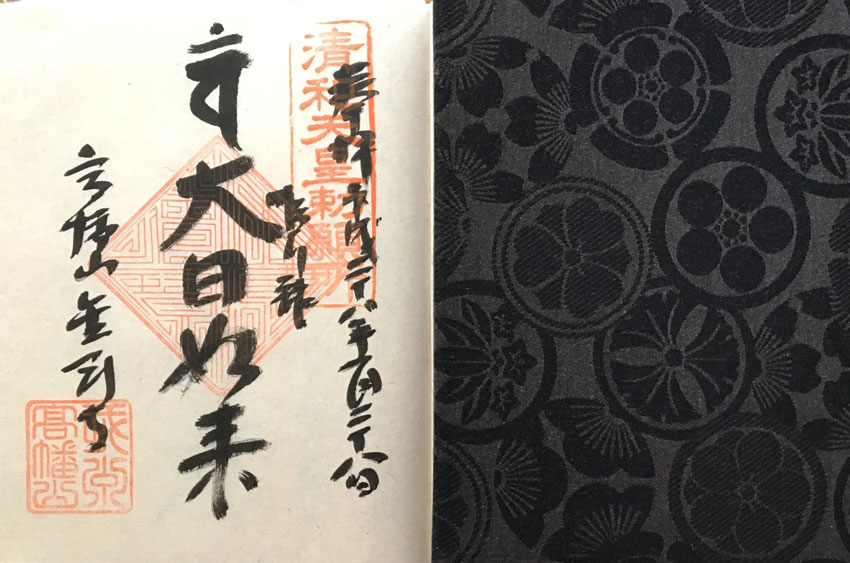 清和天皇勅願所
奉拝 平成二十八年 月二十八日
大日如来
高幡山金剛寺
高幡山